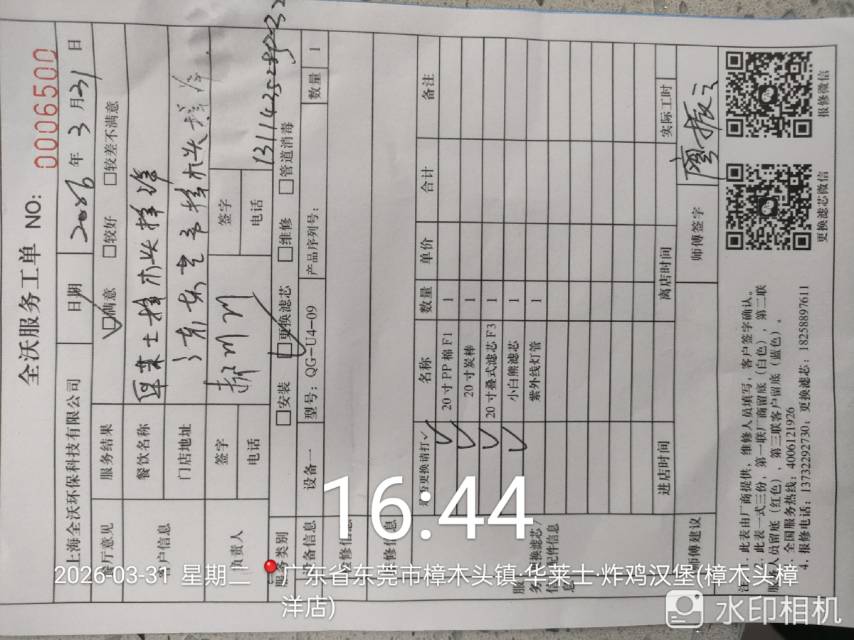 全沃服务工单 NO: 0006500
上海全沃环保科技有限公司 日期 2026 年 3 月 31 日
餐厅意见 服务结果 ☑满意 □较好 □较差不满意
客户信息 餐饮名称 华莱士樟木头樟洋
门店地址 广东东莞市樟木头樟洋
负责人 签字 签字
电话 电话
服务类别 □安装 ☑更换滤芯 □维修 □管道消毒
设备信息 设备一 型号: QG-U4-09 产品序列号: 数量 1
维修信息
维修信息
更换滤芯/
配件信息
是否更换请打✓ 名称 数量 单价 合计 备注
✓ 20 寸 PP 棉 F1 1
✓ 20 寸炭棒 1
✓ 20 寸叠式滤芯 F3 1
✓ 小白熊滤芯 1
紫外线灯管 1
进店时间 离店时间 实际工时
师傅建议 师傅签字
注:1、此表由厂商提供,维修人员填写,客户签字确认。
2、此表一式三份,第一联厂商留底(白色),第二联
服务人员留底(红色),第三联客户留底(蓝色)。
全国服务热线: 4006121926
4、报修电话: 13732292730; 更换滤芯: 18258897611
更换滤芯微信 报修微信
16:44
2026-03-31 星期二 广东省东莞市樟木头镇·华莱士·炸鸡汉堡(樟木头樟
洋店)
水印相机